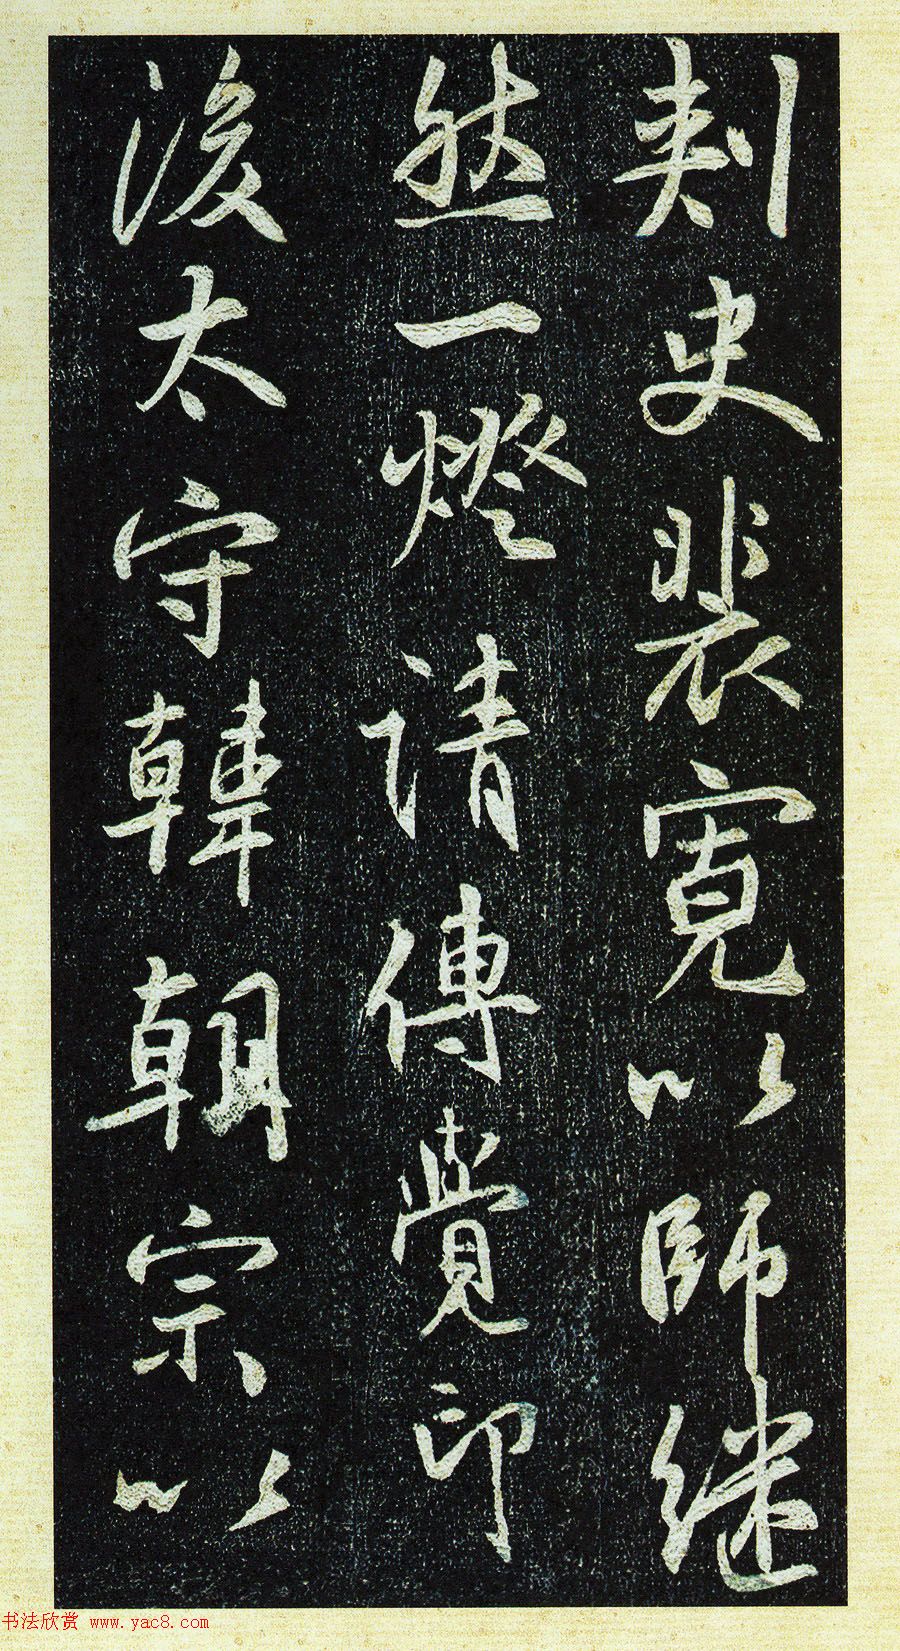 刺史裴寬以師継
然一燈請傳覺印
後太守韓朝宗以
书法欣赏 www.yac8.com